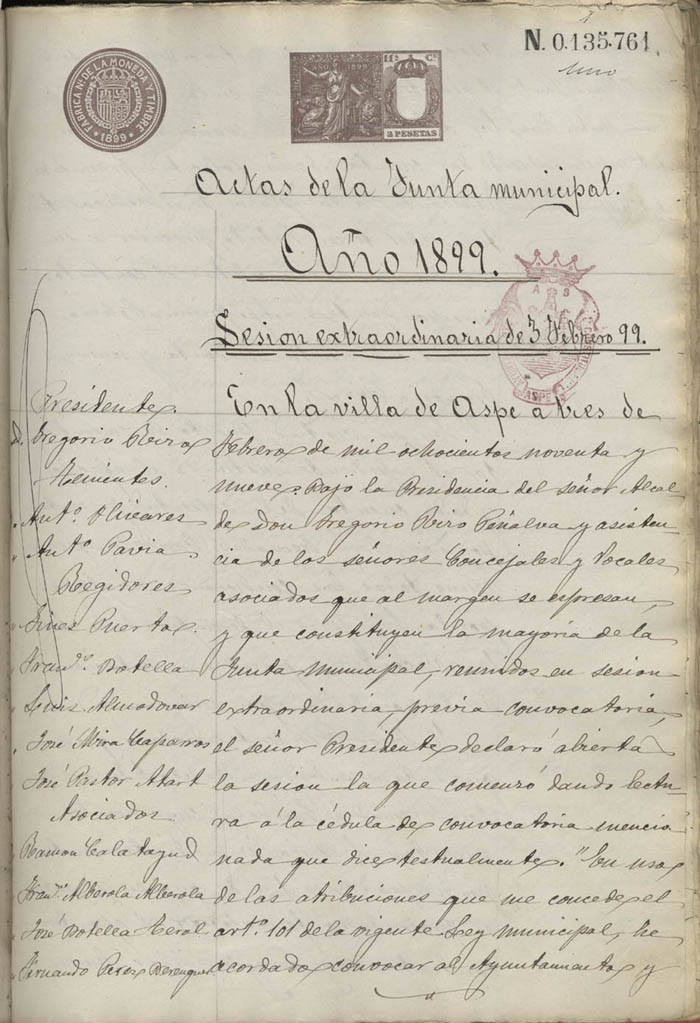 N. 0.135.761
uno
FABRICA Nl. DE LA MONEDA Y TIMBRE
1899
AÑO 1899
11ª C.
2 PESETAS
Actas de la Junta municipal.
Año 1899.
Sesion extraordinaria de 3 Febrero 99.
A S
ASPE
Presidente.
D. Gregorio Reiro
Tenientes.
" Antº. Olivares
" Antº Pavia
Regidores
" Gines Puerto.
" Franco. Botella
" Luis Almodovar
" José Mira Caparros
José Pastor Atart
Asociados.
Ramon Calatayud
Franco. Alberola Alberola
José Botella Cerol
Fernando Perez Berenguer
En la villa de Aspe a tres de
Febrero de mil ochocientos noventa y
nueve. Bajo la Presidencia del señor Alcal
de Don Gregorio Reiro Peñalva y asisten-
cia de los señores Concejales y Vocales
asociados que al margen se espresan,
y que constituyen la mayoría de la
Junta Municipal, reunidos en sesion
extraordinaria, previa convocatoria,
el señor Presidente declaró abierta
la sesion la que comenzó dando lectu-
ra á la cédula de convocatoria mencio
nada que dice testualmente. "En uso
de las atribuciones que me concede el
artº. 101 de la vigente Ley Municipal, he
acordado convocar al Ayuntamiento y